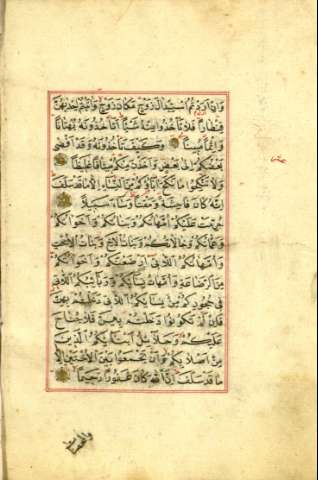 وَاِنْ اَرَدْتُمُ اسْتِبْدَالَ زَوْجٍ مَكَانَ زَوْجٍ وَاٰتَيْتُمْ اِحْدٰيهُنَّ
قِنْطَارًا فَلَا تَأْخُذُوا مِنْهُ شَيْئًا اَتَأْخُذُونَهُ بُهْتَانًا
وَاِثْمًا مُبِينًا وَكَيْفَ تَأْخُذُونَهُ وَقَدْ اَفْضٰى
بَعْضُكُمْ اِلٰى بَعْضٍ وَاَخَذْنَ مِنْكُمْ مِيثَاقًا غَلِيظًا
وَلَا تَنْكِحُوا مَا نَكَحَ اٰبَاؤُكُمْ مِنَ النِّسَاءِ اِلَّا مَا قَدْ سَلَفَ
اِنَّهُ كَانَ فَاحِشَةً وَمَقْتًا وَسَاءَ سَبِيلًا
حُرِّمَتْ عَلَيْكُمْ اُمَّهَاتُكُمْ وَبَنَاتُكُمْ وَاَخَوَاتُكُمْ
وَعَمَّاتُكُمْ وَخَالَاتُكُمْ وَبَنَاتُ الْاَخِ وَبَنَاتُ الْاُخْتِ
وَاُمَّهَاتُكُمُ اللَّاتِي اَرْضَعْنَكُمْ وَاَخَوَاتُكُمْ
مِنَ الرَّضَاعَةِ وَاُمَّهَاتُ نِسَائِكُمْ وَرَبَائِبُكُمُ اللَّاتِي
فِي حُجُورِكُمْ مِنْ نِسَائِكُمُ اللَّاتِي دَخَلْتُمْ بِهِنَّ
فَاِنْ لَمْ تَكُونُوا دَخَلْتُمْ بِهِنَّ فَلَا جُنَاحَ
عَلَيْكُمْ وَحَلَائِلُ اَبْنَائِكُمُ الَّذِينَ
مِنْ اَصْلَابِكُمْ وَاَنْ تَجْمَعُوا بَيْنَ الْاُخْتَيْنِ اِلَّا
مَا قَدْ سَلَفَ اِنَّ اللّٰهَ كَانَ غَفُورًا رَحِيمًا